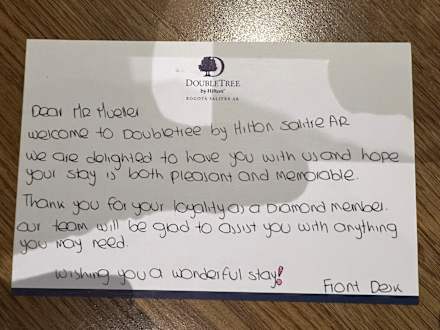 DOUBLETREE
by Hilton
BOGOTÁ SALITRE AR
Dear Mr Mueller
welcome to Doubletree by Hilton Salitre AR
we are delighted to have you with us and hope
your stay is both pleasant and memorable.
Thank you for your loyality as a Diamond Member.
our team will be glad to assist you with anything
you may need.
wishing you a wonderful stay!
Front Desk